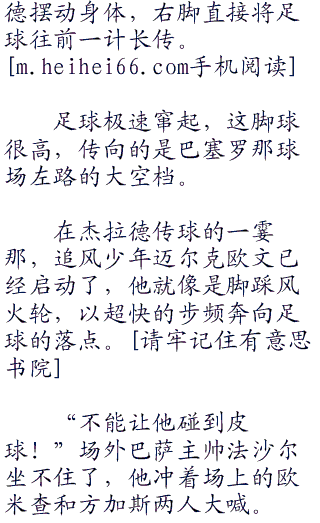 德摆动身体，右脚直接将足
球往前一计长传。
[m.heihei66.com手机阅读]
足球极速窜起，这脚球
很高，传向的是巴塞罗那球
场左路的大空档。
在杰拉德传球的一霎
那，追风少年迈尔克欧文已
经启动了，他就像是脚踩风
火轮，以超快的步频奔向足
球的落点。[请牢记住有意思
书院]
“不能让他碰到皮
球！”场外巴萨主帅法沙尔
坐不住了，他冲着场上的欧
米查和方加斯两人大喊。